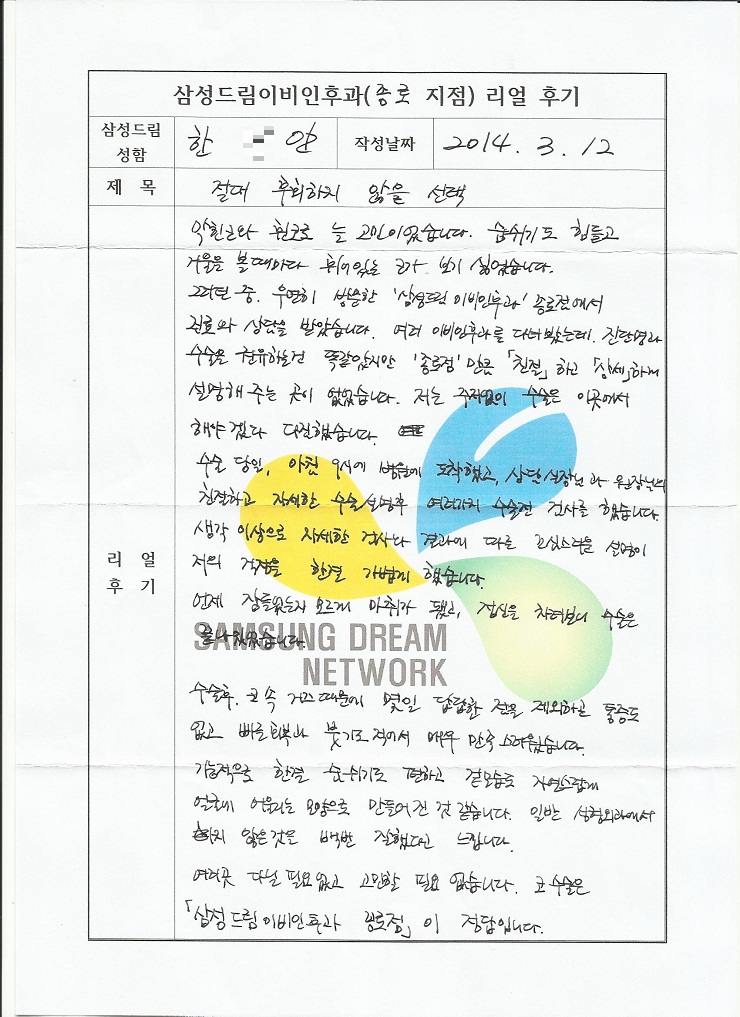 삼성드림이비인후과(종로 지점) 리얼 후기
삼성드림
성함
한 안
작성날짜
2014. 3. 12
제 목
절대 후회하지 않을 선택
리 얼
후 기
휜코로 늘 고민이었습니다. 숨쉬기도 힘들고
거울을 볼때마다 휘어있는 코가 보기 싫었습니다.
그러던 중, 우연히 방문한 '삼성드림 이비인후과' 종로점에서
진료와 상담을 받았습니다. 여러 이비인후과를 다녀봤는데, 진단명과
수술을 권유하는건 똑같았지만 '종로점' 만큼 「친절」하고 「상세」하게
설명해 주는 곳이 없었습니다. 저는 주저없이 수술은 이곳에서
해야겠다 다짐했습니다.
수술 당일, 아침 9시에 병원에 도착했고, 상담실장님과 원장님의
친절하고 자세한 수술설명후 여러가지 수술전 검사를 했습니다.
생각 이상으로 자세한 검사나 결과에 따른 설명이
저의 걱정을 한결 가볍게 했습니다.
언제 잠들었는지 모르게 마취가 됐고, 정신을 차려보니 수술은
끝나있었습니다.
SAMSUNG DREAM
NETWORK
수술후, 코 속 거즈때문에 몇일 답답한 점을 제외하곤 통증도
없고 빠른회복과 붓기도 적어서 매우 만족스러웠습니다.
기능적으로 한결 숨쉬기도 편하고 겉모습도 자연스럽게
얼굴에 어울리는 모양으로 만들어진 것 같습니다. 일반 성형외과에서
하지 않은것을 백번 잘했다고 느낍니다.
여러곳 다닐 필요없고 고민할 필요 없습니다. 코 수술은
「삼성드림이비인후과 종로점」이 정답입니다.